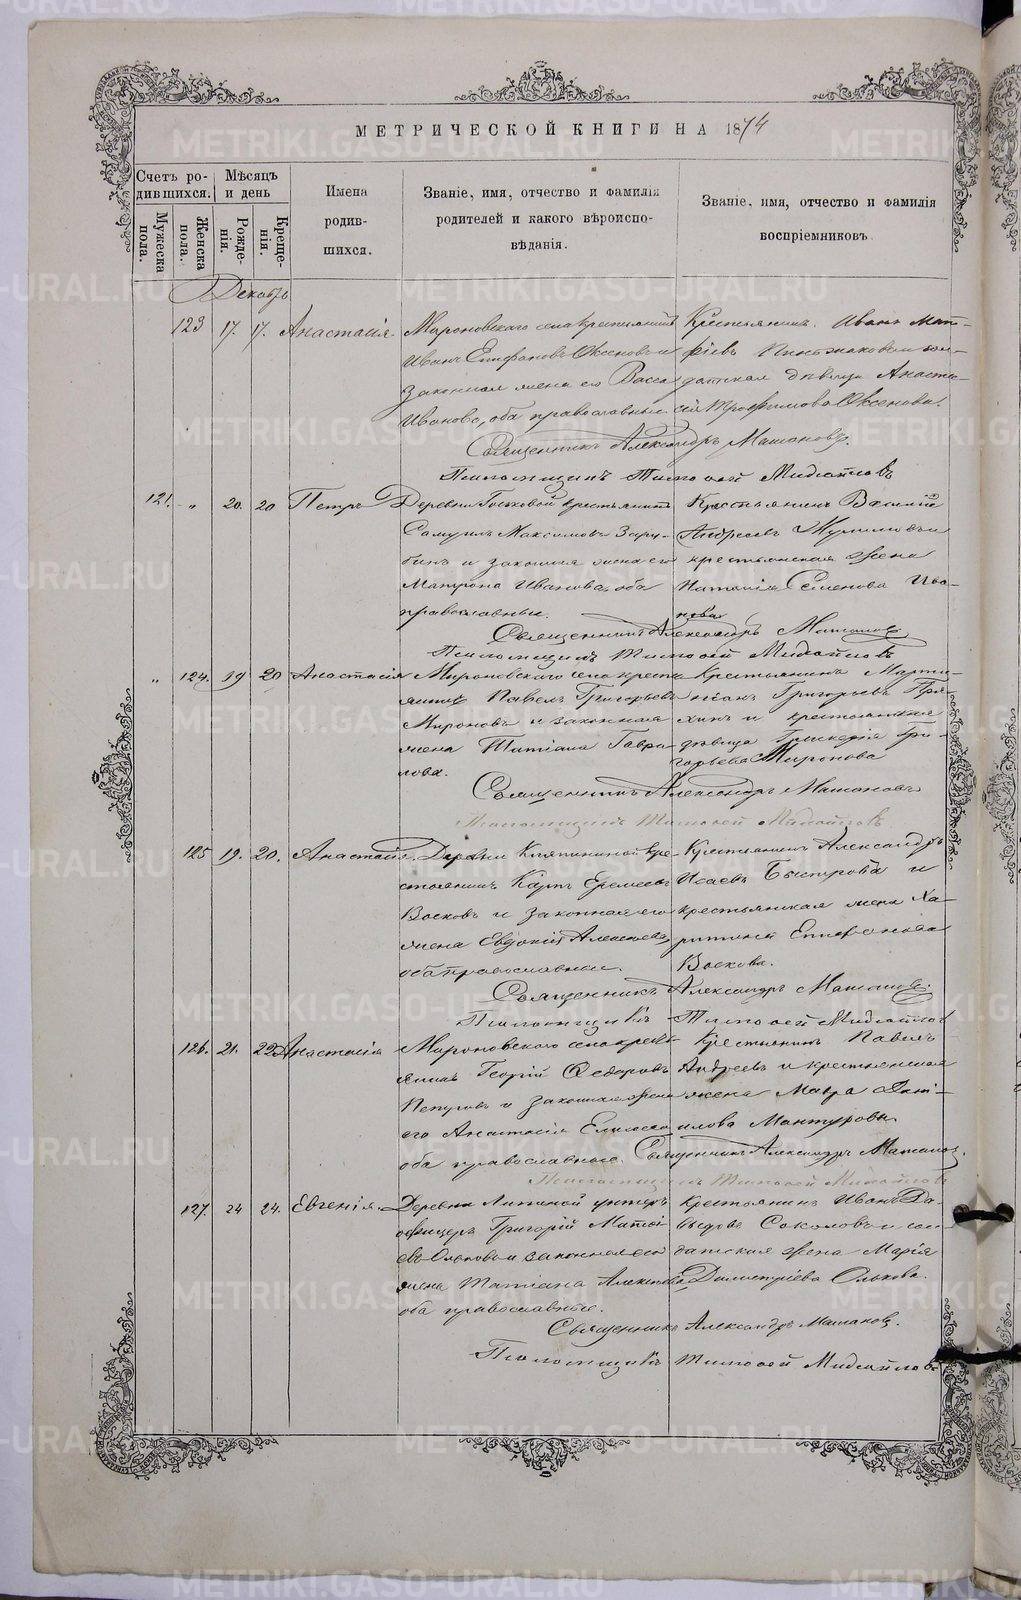 МЕТРИЧЕСКОЙ КНИГИ НА 1874
Счетъ родившихся.
Мѣсяцъ и день
Мужеска пола.
Женска пола.
Рожденія.
Крещенія.
Имена родившихся.
Званіе, имя, отчество и фамилія родителей и какого вѣроисповѣданія.
Званіе, имя, отчество и фамилія воспріемниковъ.
Декабрь
123 17. 17. Анастасія
Мироновскаго села крестьянинъ
Иванъ Епифановъ Оксеновъ и
законная жена его Васса
Иванова, оба православные
Крестьянинъ Иванъ
дѣвица Анаста-
сія Трофимова Оксенова.
Священникъ Александръ Матановъ.
Псаломщикъ Тимофей Михайловъ
121. " 20. 20 Петръ
Деревни крестьянинъ
Самуилъ Максимовъ
и законная жена его
Матрона Иванова, оба
православные.
Крестьянинъ Василій
Андреевъ и
крестьянская жена
Наталія Семенова Ива-
нова
Священникъ Александръ Матановъ
Псаломщикъ Тимофей Михайловъ
" 124. 19 20 Анастасія
Мироновскаго села кресть-
янинъ Павелъ Григорьевъ
Мироновъ и законная
жена Татіана Гаври-
лова.
Крестьянинъ Марти-
ніанъ Григорьевъ
и крестьянская
дѣвица Гри-
горьева Миронова
Священникъ Александръ Матановъ
Псаломщикъ Тимофей Михайловъ
125 19. 20. Анастасія.
Деревни кре-
стьянинъ Карпъ Еремеевъ
Восковъ и законная его
жена Евдокія Алексѣева,
оба православные.
Крестьянинъ Александръ
Исаевъ Быстровъ и
крестьянская жена Ха-
ритина Епифанова
Воскова.
Священникъ Александръ Матановъ
Псаломщикъ Тимофей Михайловъ
126. 21. 22 Анастасія
Мироновскаго села кресть-
янинъ Георгій Ѳедоровъ
и законная жена
его Анастасія
оба православные.
Крестьянинъ Павелъ
Андреевъ и крестьянская
жена Мавра Дани-
илова Мантуровы
Священникъ Александръ Матановъ.
Псаломщикъ Тимофей Михайловъ
127. 24 24. Евгенія.
Деревни Липиной унтеръ
офицеръ Григорій Матѳі-
евъ Ольковъ и законная его
жена Татіана Алексѣева
оба православные.
Крестьянинъ Иванъ Да-
выдовъ Соколовъ и сол-
датская жена Марія
Димитріева Олькова.
Священникъ Александръ Матановъ.
Псаломщикъ Тимофей Михайловъ
METRIKI.GASO-URAL.RU